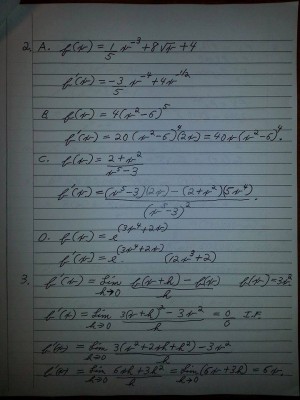 2. A. f(x) = 1/5 x^-3 + 8√x + 4
f'(x) = -3/5 x^-4 + 4x^-1/2
B. f(x) = 4(x^2-6)^5
f'(x) = 20(x^2-6)^4(2x) = 40x(x^2-6)^4.
C. f(x) = 2+x^2 / x^5-3
f'(x) = (x^5-3)(2x) - (2+x^2)(5x^4) / (x^5-3)^2.
D. f(x) = e^(3x^4+2x)
f'(x) = e^(3x^4+2x) (12x^3+2)
3. f'(x) = lim h→0 f(x+h) - f(x) / h f(x) = 3x^2
f'(x) = lim h→0 3(x+h)^2 - 3x^2 / h = 0/0 I.F.
f'(x) = lim h→0 3(x^2+2xh+h^2) - 3x^2 / h
f'(x) = lim h→0 6xh+3h^2 / h = lim h→0 (6x+3h) = 6x.